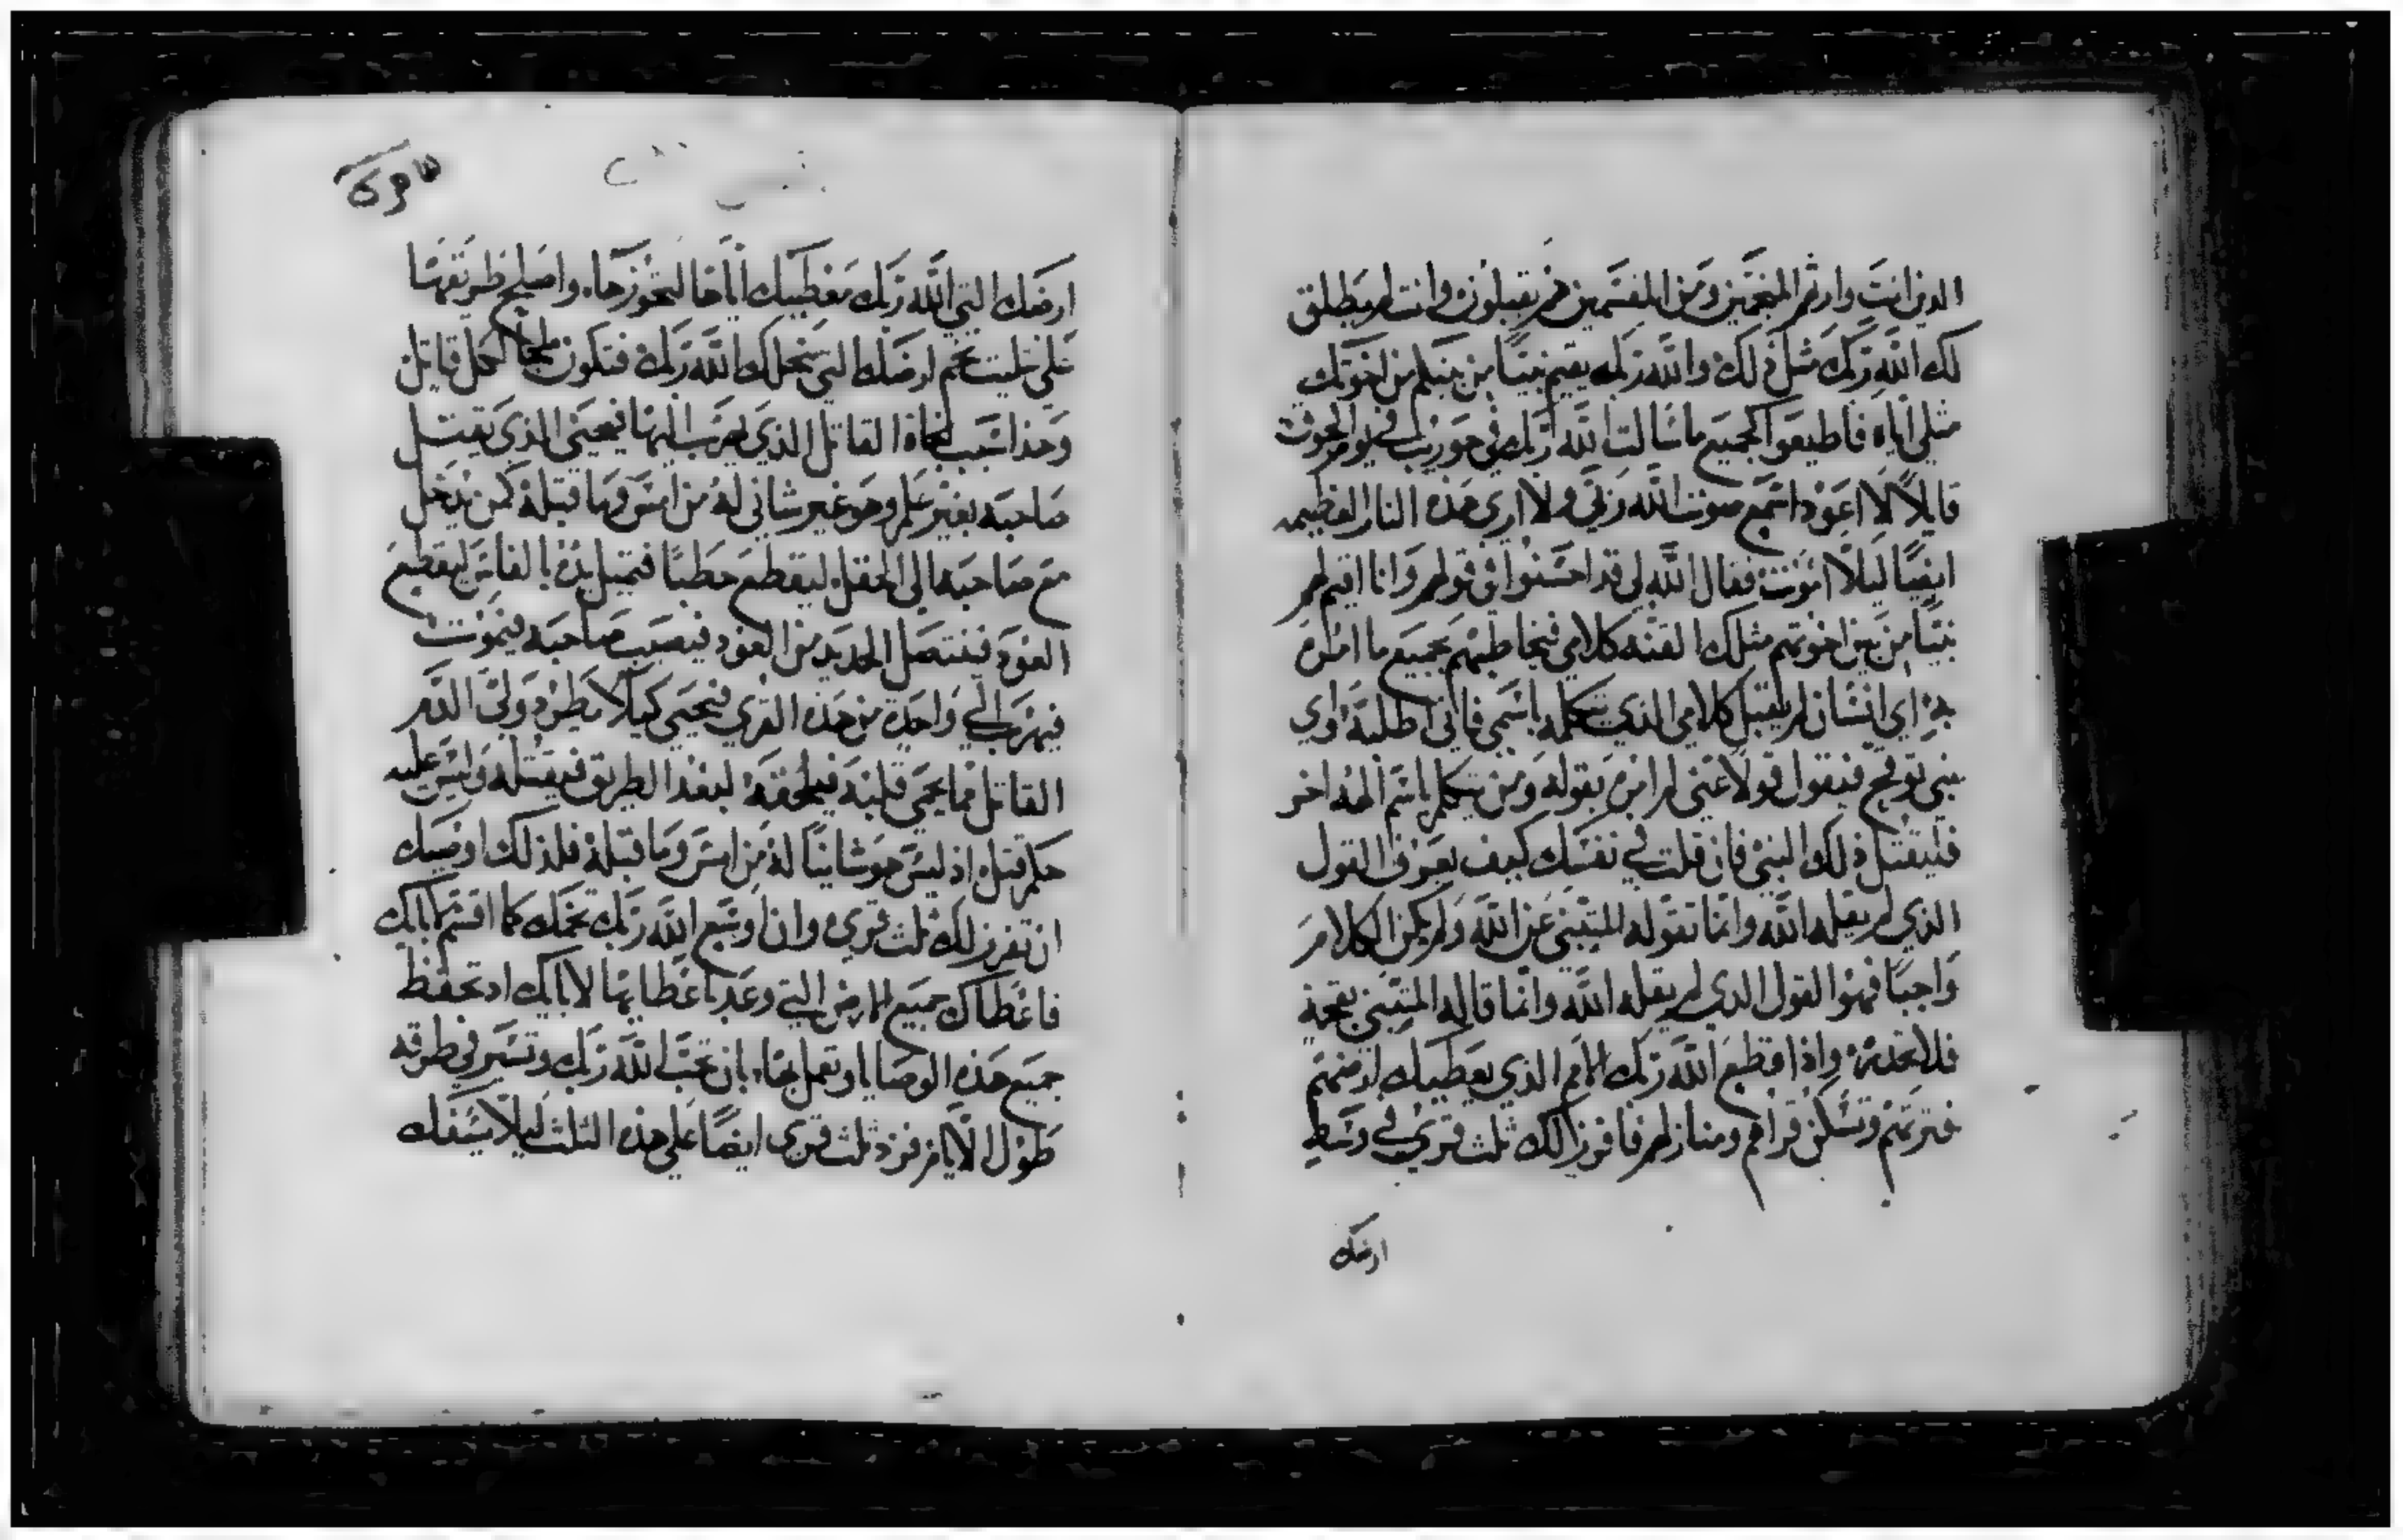 الذين انت وارثهم المنجمين ومن المقسمين هم يقبلون وانت لم يطلق
لك الله ربك مثل ذلك والله ربك يقيم نبيًا من بينكم من اخوتك
مثلي اياه فاطيعوا كجميع ما سالت الله ربك في حوريب في يوم الجوث
قايلاً لا اعود اسمع صوت الله ربي ولا اري هذه النار العظيمه
ايضًا ليلا اموت فقال الله لي قد احسنوا في قولهم وانا اقيم لهم
نبيًا من بين اخوتهم مثلك القنه كلامي فيخاطبهم بجميع ما امره
به اي انسان لم يقبل كلامي الذي يتكلم باسمي فاني اطلبه واي
نبي توقح فيقول قولاً عني لم امره بقوله ومن يتكلم باسم الهه اخر
فليقتل ذلك النبي فان قلت في نفسك كيف يعرف القول
الذي لم يقله الله وانما تقوله المتنبي عن الله ولم يكن الكلام
واجبًا فهو القول الذي لم يقله الله وانما قاله المتنبي بقحة
فلا تحذره واذا قطع الله ربك الامم الذي يعطيك ارضهم
فترثهم وتسكن قراهم ومنازلهم فافرز لك ثلث قري في وسط
ارضك
ارضك التي الله ربك معطيك اياها لتحوزها واصلح طريقها
علي تثليث تخم ارضك التي ينحلك الله ربك فتكون ملجا لكل قاتل
وهذا سبب نجاة القاتل الذي يهرب اليها فيحيى الذي يقتل
صاحبه بغير علم وهو غير شاني له من امس وما قبله كمن يدخل
مع صاحبه الي الحقل ليقطع حطبًا فتميل يده بالفاس ليقطع
العود فيفتصل الحديد من العود فيصيب صاحبه فيموت
فيهرب الي واحدة من هذه القري فيحيى كيلا يطرد ولي الدم
القاتل مما يحمي قلبه فيلحقه لبعد الطريق فيقتله وليس عليه
حكم قتل اذ ليس هو شانيًا له من امس وما قبله فلذلك اوصيك
ان تفرز لك ثلث قري وان اوسع الله ربك تخمك كما اقسم لابايك
فاعطاك جميع الارض التي وعد باعطايها لابايك اد تحفظ
جميع هذه الوصايا وتعمل بها بان تحب الله ربك وتسير في طرقه
طول الايام فزد ثلث قري ايضًا علي هذه الثلث ليلا يسفك